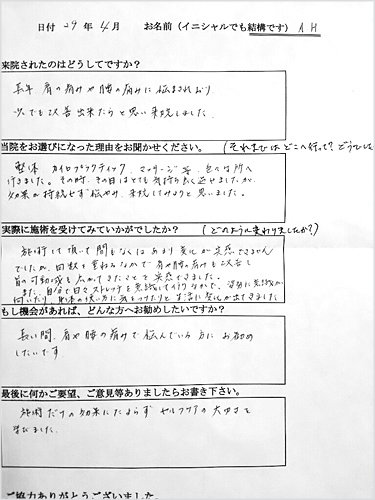 日付 29 年 4 月　お名前（イニシャルでも結構です） A H
来院されたのはどうしてですか？
長年 肩の痛みや腰の痛みに悩まされており
少しでも改善出来たらと思い来院しました。
当院をお選びになった理由をお聞かせください。（それまではどこへ行って？どうでした
整体 カイロプラクティック マッサージ等、色々な所へ
行きました。その時、その日はとても気持ち良く過ごせましたが、
効果が持続せず悩み、来院してみようと思いました。
実際に施術を受けてみていかがでしたか？（どのように変わりましたか？）
施術して頂いて間もなくは あまり変化が実感できません
でしたが、回数を重ねるなかで 肩や腰の痛みも改善し
首の可動域も広がってきたことを実感できました。
また、自分で日々ストレッチを意識して行うなかで、姿勢に意識が
向いたり、身体の使い方に気をつけたりと生活に変化が出てきました
もし機会があれば、どんな方へお勧めしたいですか？
長い間、肩や腰の痛みで悩んでいる方にお勧め
したいです
最後に何かご要望、ご意見等ありましたらお書き下さい。
施術だけの効果にたよらず セルフケアの大切さを
学びました。
ご協力ありがとうございました